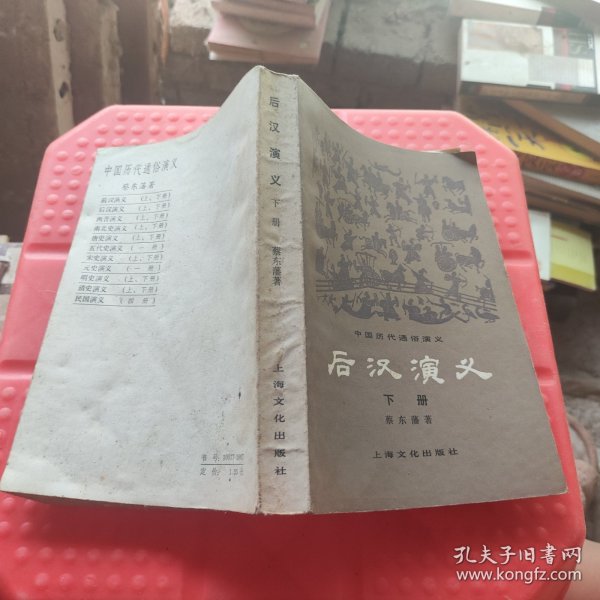 中国历代通俗演义
蔡东藩著
前汉演义 (上、下册)
后汉演义 (上、下册)
两晋演义 (上、下册)
南北史演义 (上、下册)
唐史演义 (上、下册)
五代史演义 (一册)
宋史演义 (上、下册)
元史演义 (一册)
明史演义 (上、下册)
清史演义 (上、下册)
民国演义 (四册)
书号:
定价:
后汉演义 下册 蔡东藩著 上海文化出版社
中国历代通俗演义
后汉演义
下册
蔡东藩著
上海文化出版社
孔夫子旧书网
www.kongfz.com